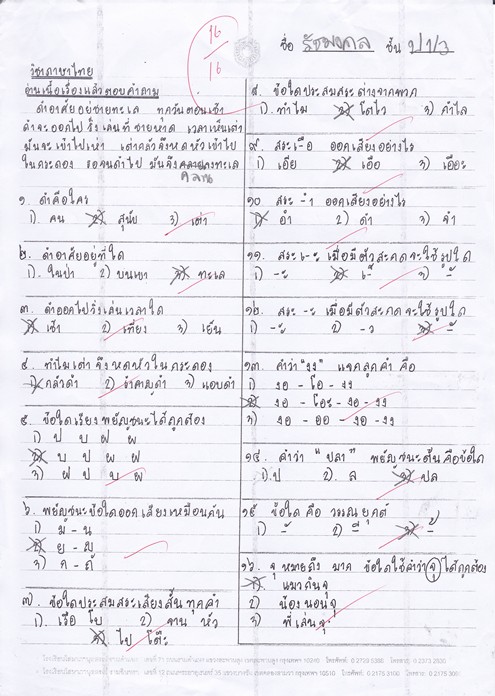 16
16
ชื่อ รัชมงคล ชั้น ป1/3
วิชาภาษาไทย
อ่านเนื้อเรื่องแล้วตอบคำถาม
ดำอาศัยอยู่ชายทะเล ทุกวันตอนเช้า
ดำจะออกไปวิ่งเล่นที่ชายหาด เวลาเห็นเต่า
มันจะเข้าไปเห่า เต่ากลัวจึงหดหัวเข้าไป
ในกระดอง รอจนดำไป มันจึงคลานลงทะเล
คลาน
๑. ดำคือใคร
1). คน 2) สุนัข 3) เต่า
๒. ดำอาศัยอยู่ที่ใด
1). ในป่า 2) บนเขา 3) ทะเล
๓. ดำออกไปวิ่งเล่นเวลาใด
1) เช้า 2) เที่ยง 3) เย็น
๔. ทำไมเต่าจึงหดหัวในกระดอง
1) กลัวดำ 2) รำคาญดำ 3) แอบดำ
๕. ข้อใดเรียงพยัญชนะได้ถูกต้อง
1) ป บ ฝ ผ
2) บ ป ผ ฝ
3) ฝ ป บ ผ
๖. พยัญชนะข้อใดออกเสียงเหมือนกัน
1) ม - น
2) ย - ญ
3) ค - ถ
๗. ข้อใดประสมสระเสียงสั้นทุกคำ
1). เรือ โบ 2) จาน หัว
3) ไป โต๊ะ
๘. ข้อใดประสมสระต่างจากพวก
1). ทำไม 2) โตไว 3) กำไล
๙. สระเ-ือ ออกเสียงอย่างไร
1) เอีย 2) เอือ 3) เอือะ
๑๐ สระ -ำ ออกเสียงอย่างไร
1) อำ 2) ดำ 3) จำ
๑๑. สระ เ-ะ เมื่อมีตัวสะกดจะใช้รูปใด
1) -ะ 2) เ-็ 3) -ั
๑๒. สระ -ะ เมื่อมีตัวสะกดจะใช้รูปใด
1) -ะ 2) -ว 3) -ั
๑๓. คำว่า "งง" แจกลูกคำ คือ
1) งอ - โอ - งง
2) งอ - โอะ - งอ - งง
3) งอ - ออ - งอ - งง
๑๔. คำว่า "ปลา" พยัญชนะต้น คือข้อใด
1). ป 2). ล 3) ปล
๑๕ ข้อใด คือ วรรณยุกต์
1) -ั 2) -ี 3) -้
๑๖. จุ หมายถึง มาก ข้อใดใช้คำว่า จุ ได้ถูกต้อง
1) แมวกินจุ
2) น้องนอนจุ
3) พี่เล่นจุ